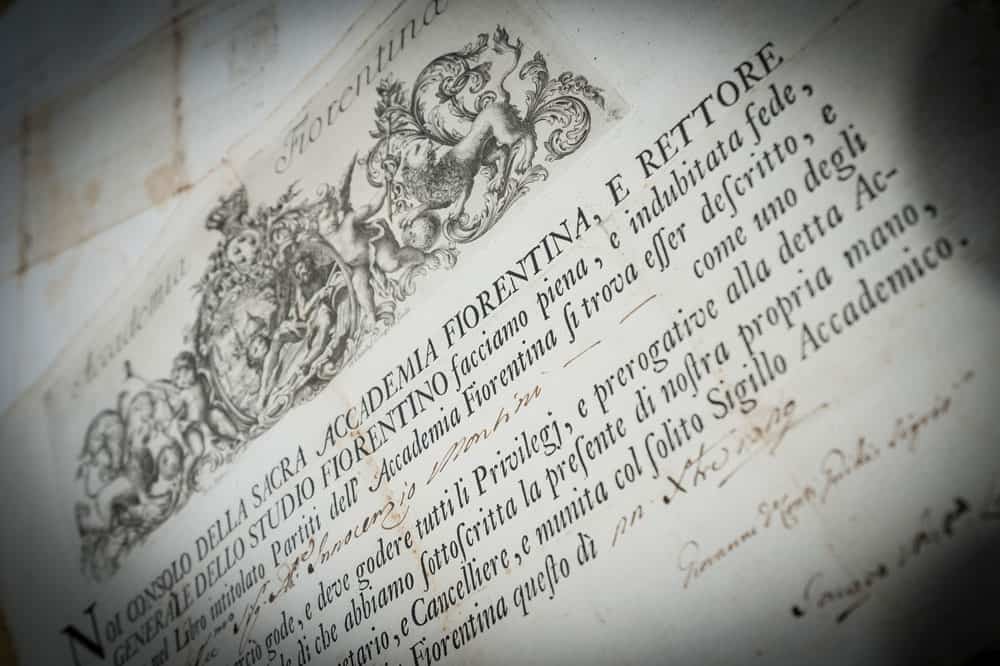 Accademia Fiorentina
NOI CONSOLO DELLA SACRA ACCADEMIA FIORENTINA, E RETTORE
GENERALE DELLO STUDIO FIORENTINO facciamo piena, e indubitata fede,
nel Libro intitolato Partiti dell' Accademia Fiorentina ſi trova eſſer deſcritto, e
Innocenzio Martini — come uno degli
ciò gode, e deve godere tutti li Privilegj, e prerogative alla detta Ac-
di che abbiamo ſottoſcritta la preſente di noſtra propria mano,
etario, e Cancelliere, e munita col ſolito Sigillo Accademico.
Fiorentina queſto dì
Giovanni